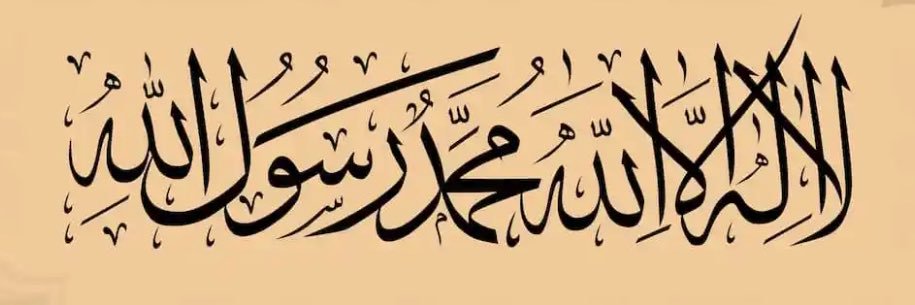 لَا إِلٰهَ إِلَّا اللهُ مُحَمَّدٌ رَسُولُ اللهِ